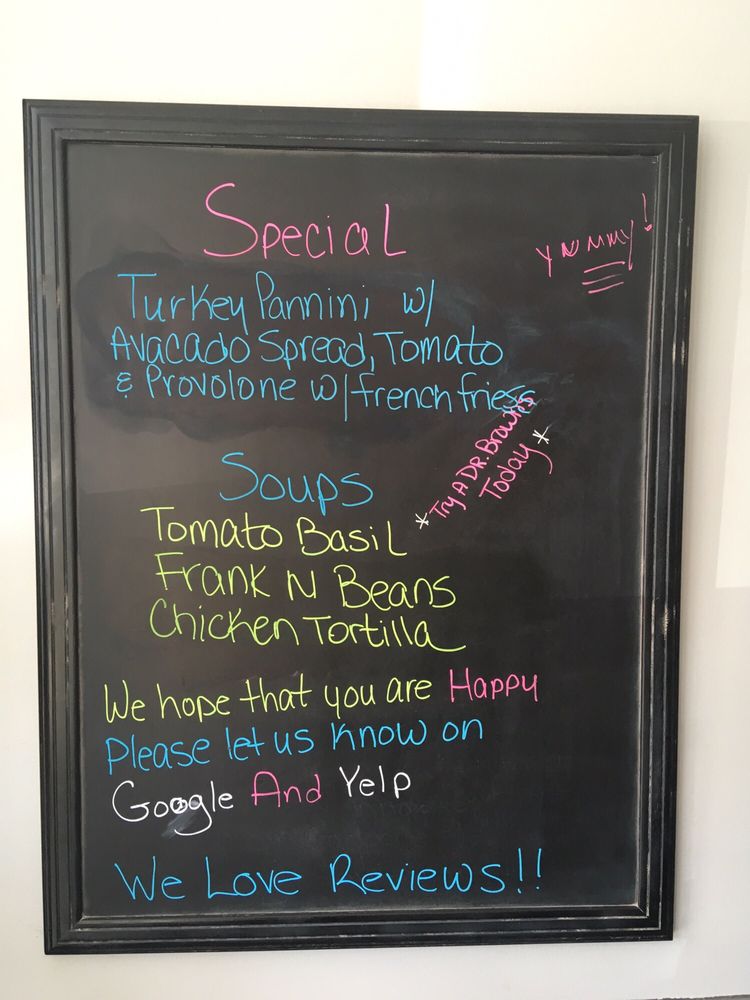 Special
Yummy!
Turkey Pannini w/
Avacado Spread, Tomato
& Provolone w/french fries
*Try A DR. Browns
Today*
Soups
Tomato Basil
Frank N Beans
Chicken Tortilla
We hope that you are Happy
Please let us know on
Google And Yelp
We Love Reviews!!